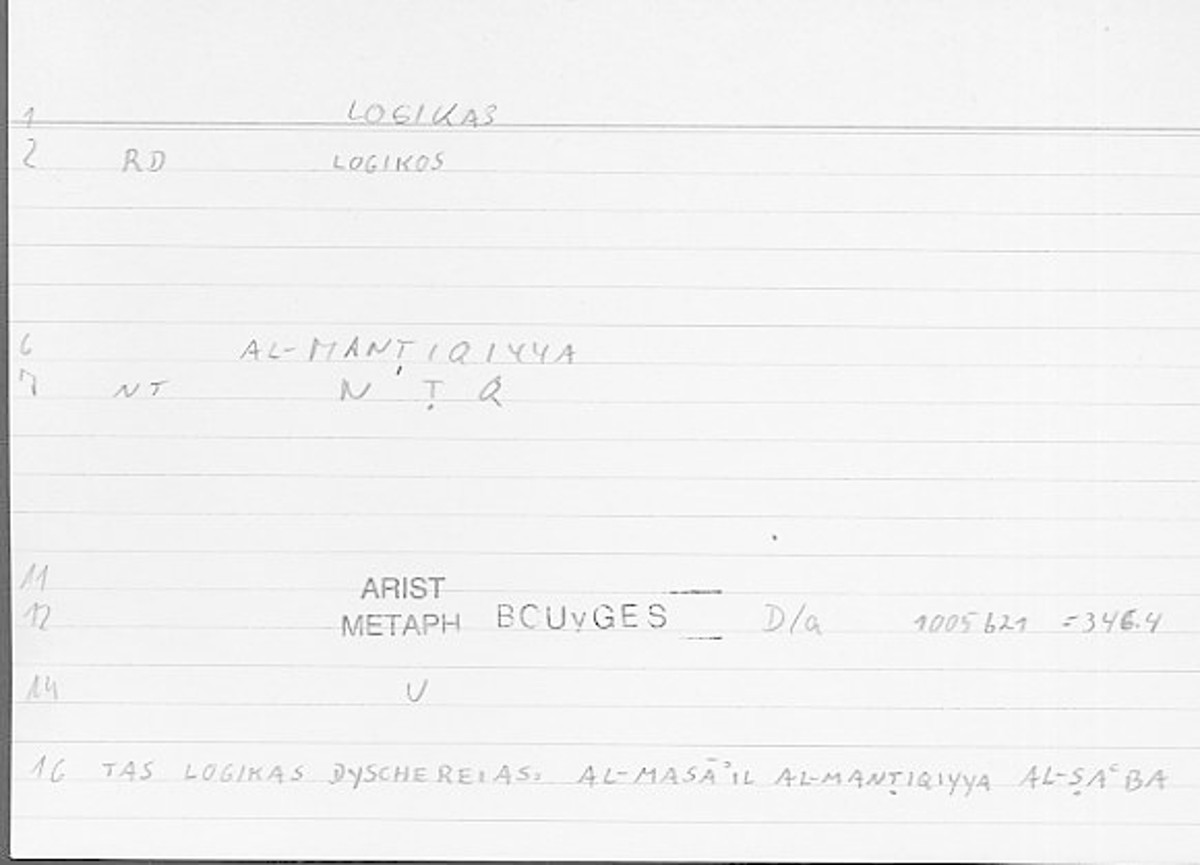 1 LOGIKAS
2 RD LOGIKOS
6 AL-MANṬIQIYYA
7 NT N Ṭ Q
11 ARIST
12 METAPH BCUvGES D/a 1005b21 =346.4
14 V
16 TAS LOGIKAS DYSCHEREIAS: AL-MASĀʾIL AL-MANṬIQIYYA AL-ṢAʿBA